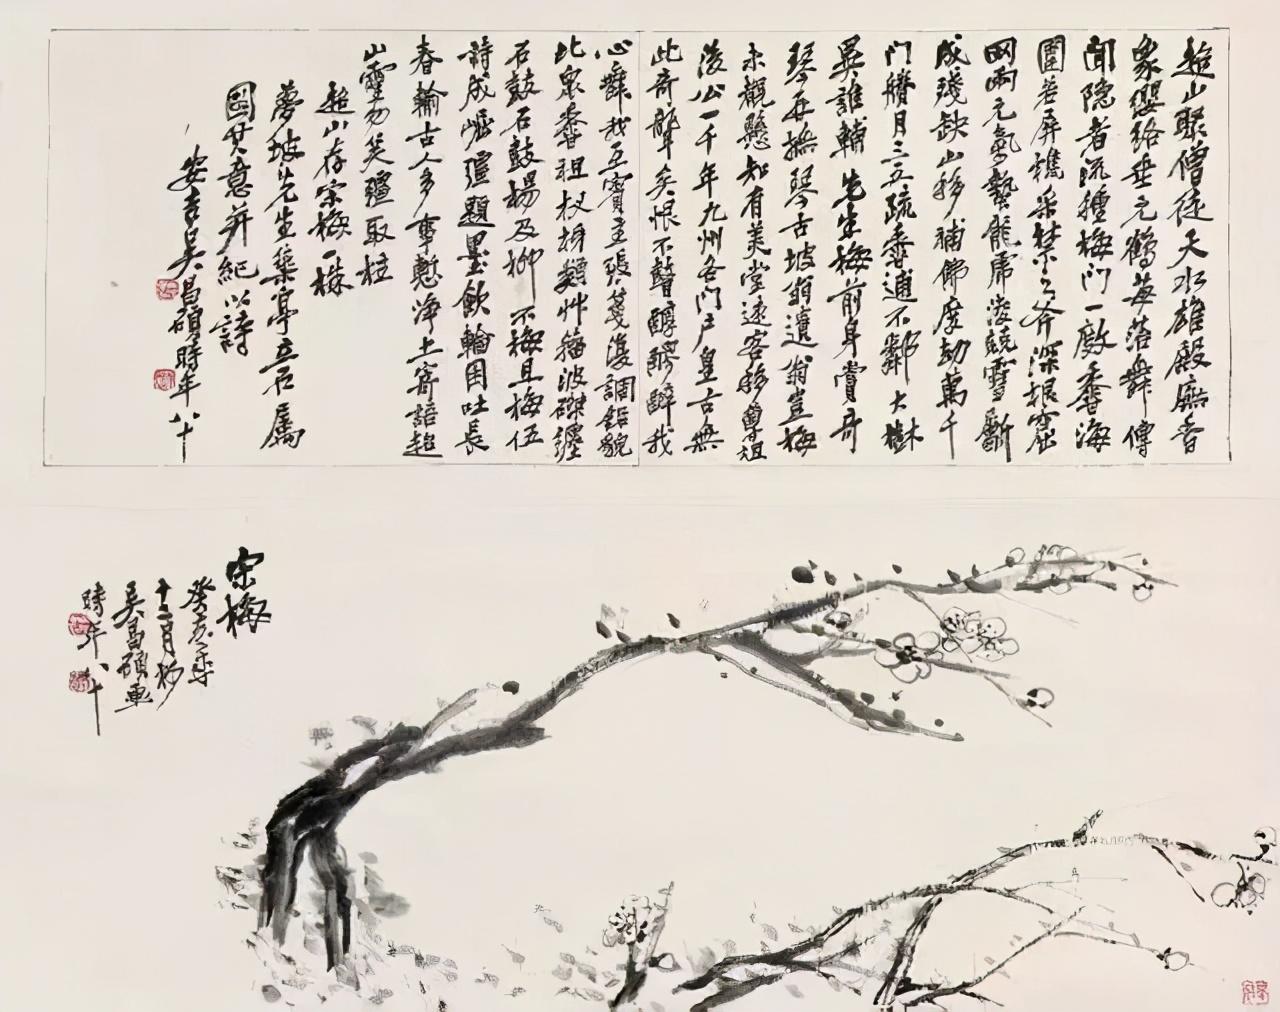 超山聚僧徒天水雄殿廡香
象纓絡垂元鶴莓苔舞傳
聞隱者流種梅門一廠香海
圍若屏樵采禁之斧深根窟
罔兩元氣蟄龍虎淩兢雪斷
成殘缺山移補佛度劫萬千
門艚月三五疏香適不鄰大樹
異誰輔先生梅前身賞奇
琴再撫琴古坡翁遺翁豈梅
未觀懸知有美堂遠客移尊俎
後公一千年九州各門戶皇古無
此奇聲矣恨不瞽醇醪醉我
心舞我互賓主張箋復調鉛貌
此眾香祖杖拊類艸籀波磔鑱
石鼓石鼓楊及柳不梅且梅伍
詩成嶇彊題墨飲輪囷吐長
春輸古人多事慙淨土寄語超
山靈勿笑彊取柱
超山存宋梅一株
夢坡先生築亭立石屬
圖其意并紀以詩
安吉吳昌碩時年八十
宋梅
癸亥年
十二月杪
吳昌碩畫
時年八十